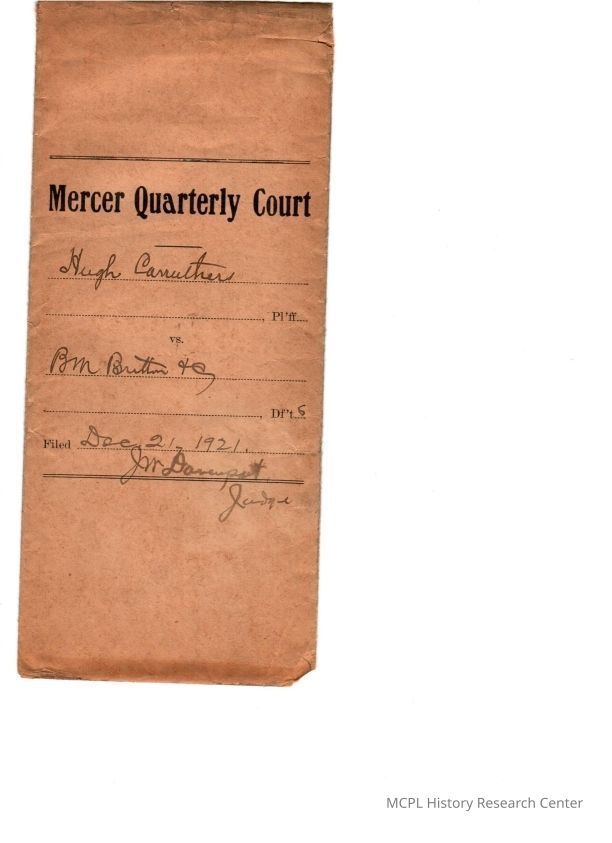 Mercer Quarterly Court
Hugh Carruthers
, Pl'ff.
vs.
BM Britton &C,
, Df't.s
Filed Dec 21, 1921.
JW Davenport,
Judge
MCPL History Research Center